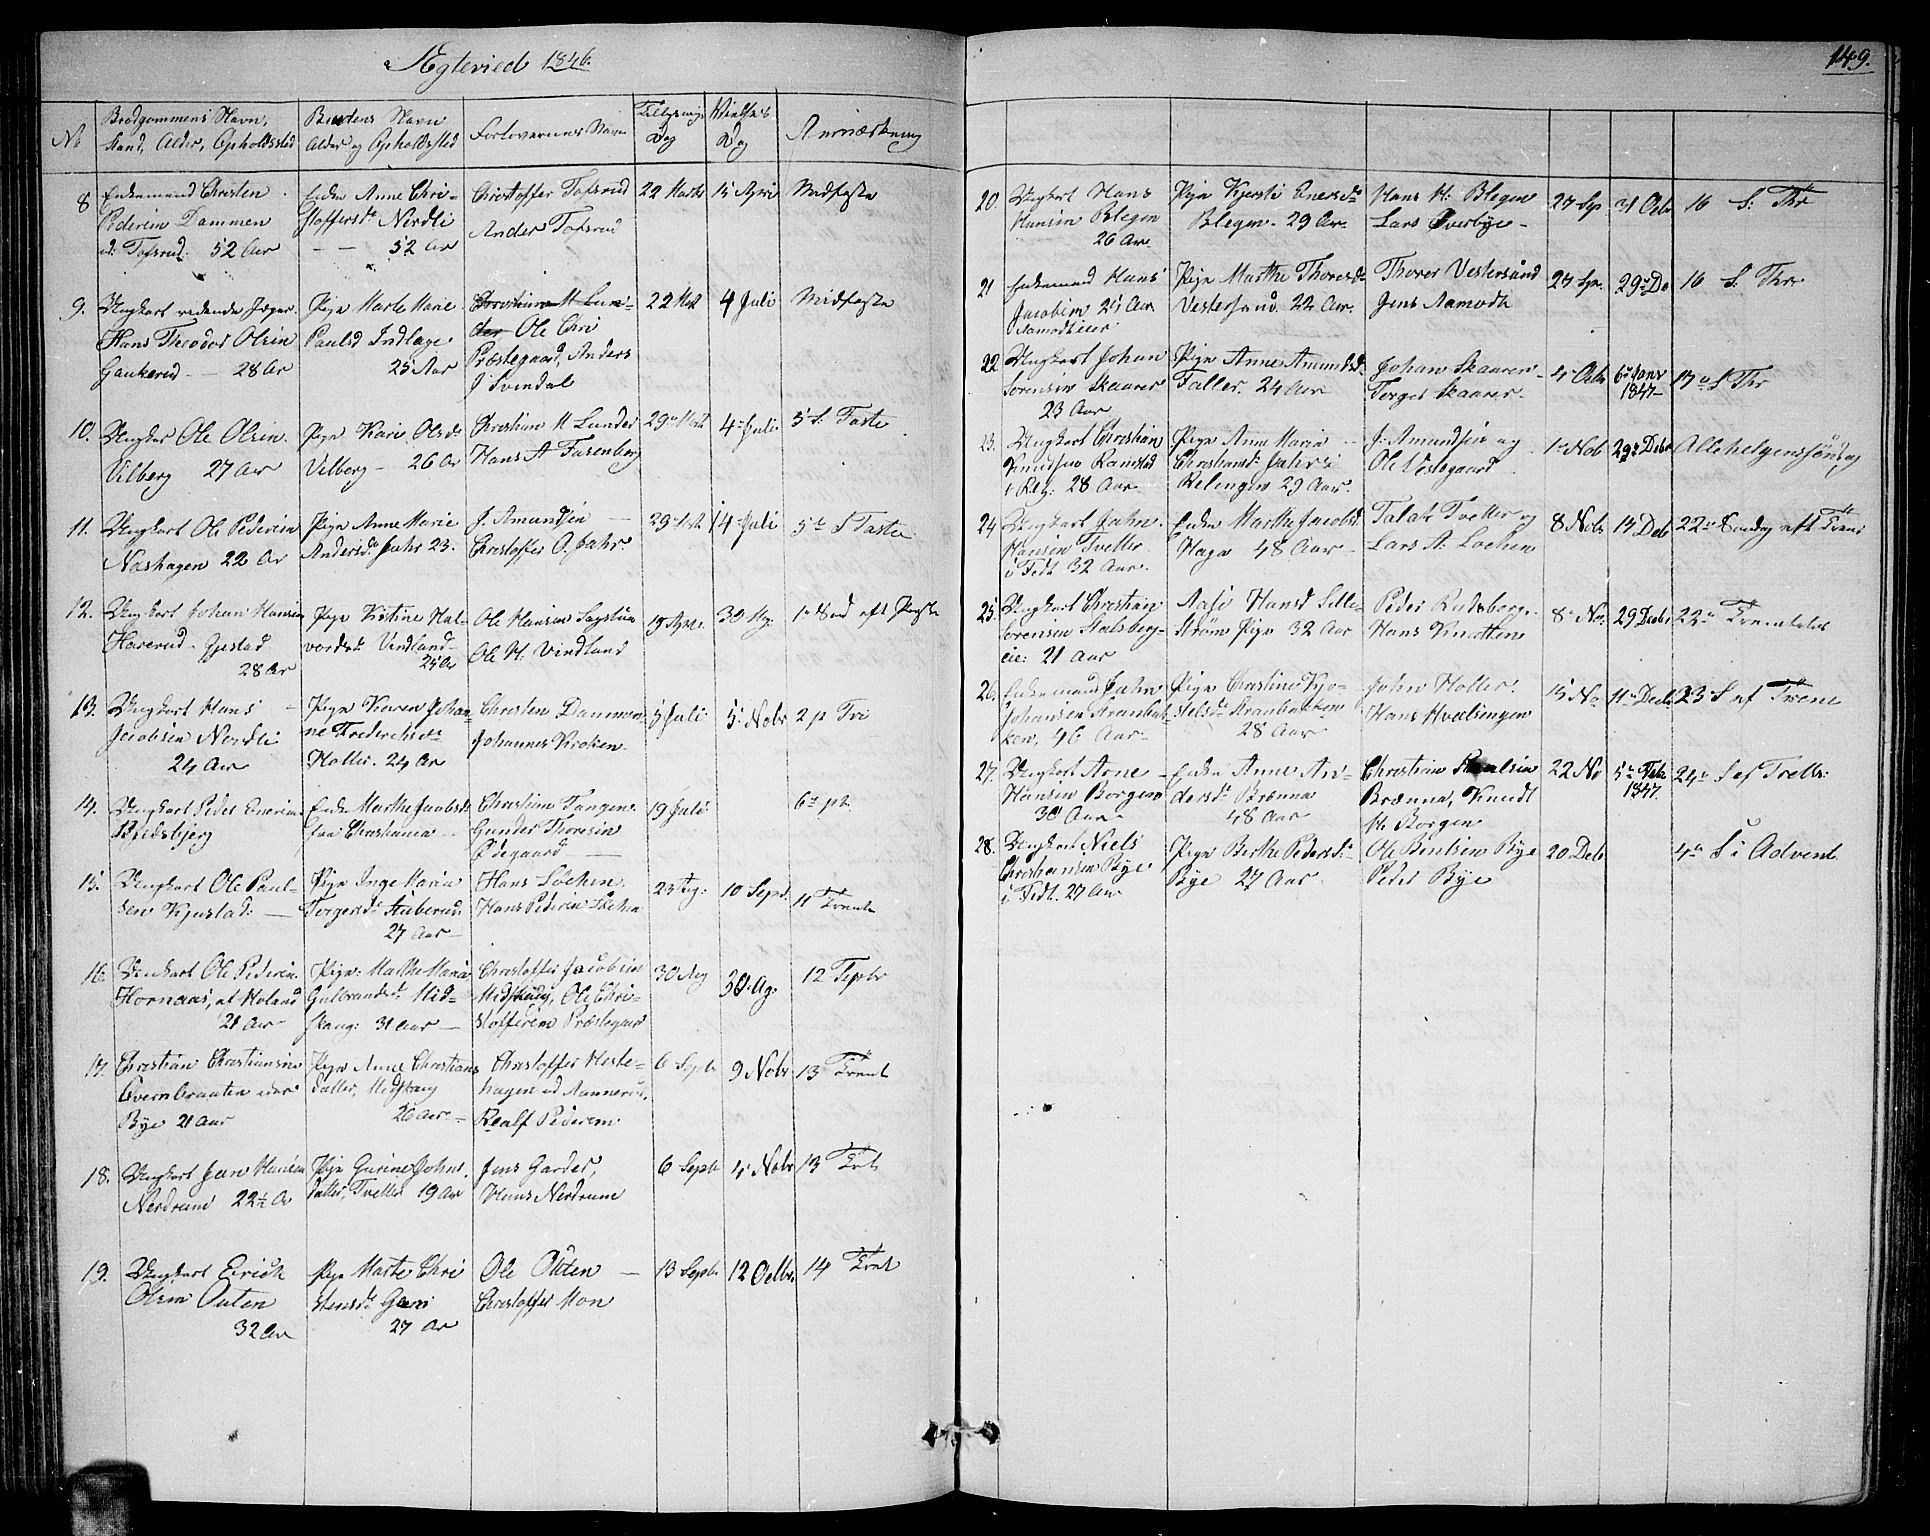 Ægteviede 1846.
149.
No
Brudgommens Navn,
Stand, Alder, Opholdssted
Brudens Navn
Alder og Opholdssted
Forlovernes Navn
Tillysnings
Dag
Vielses
Dag
Anmærkning
8
Enkemand Christen
Pedersen Dammen
52 Aar
Enke Anne Chri-
stoffersd. Nordli
52 Aar
Christoffer Tofsrud
Anders Tofsrud
22 Marts
15 April
Midfaste
9.
Ungkart
Hans Theodor Olsen
Gaukerud — 28 Ar
Pige Marte Marie
Paulsd
25 Aar
Christian M Lun-
der Ole Chri
Præstegaard, Anders
J Svendal
22 Mts
4 Juli
Midfaste
10.
Ungkar Ole Olsen
Vilberg 27 Aar
Pige Kari Olsd.
Vilberg — 26 Ar
Christian M Lunder
Hans A Fasenberg
29 Mts
4 Juli
5 S. Faste
11.
Ungkart Ole Pedersen
Nashagen 22 Ar
Pige Anne Marie
Andersd. Jahr 23.
J. Amundsen
Christoffer O. Jahr.
29 Mts
14 Juli
5te S Faste
12.
Ungkart Johan Hansen
Harerud - Gjestad
28 Ar
Pige Kistine Hal-
vordsd. Vindland
25 Ar
Ole Hansen
Ole H. Vindland
19 Apr.
30
1e Sønd eft Paaske
13.
Ungkart Hans
Jacobsen Nordli
24 Aar
Pige Karen Johan-
ne Frederiksd.
Holter. 24 Ar
Christen Dammen
Johannes Kroken
5 Juli
5 Nobr
2 p Tri
14.
Ungkart Peder Enersen
Enke Marthe Jacobsd.
fra Christiania
Christian Tangen
Gunder Thoresen
Ødegaard
19 Juli
6te p
15.
Ungkart Ole Paul-
sen Kjustad:
Pige Inge Maria
Torgersd. Auberud
27 Aar
Hans Løchen
Hans Pedersen Løchen
23 Aug:
10 Sept.
11 Trent
16.
Ungkart Ole Pedersen
Hornaas, af Høland
21 Aar
Pige: Marthe Maria
Gulbrandsd. Mid-
skaug: 31 Aar
Christoffer Jacobsen
Midskaug, Ole Chri-
stoffersen Præstegaard
30 Aug
30. Ag.
12
17.
Christian Christiansen
Qvernbraaten
Bye 21 Aar
Pige Anne Christians
datter, Midskaug
26 Aar
Christoffer Heste-
hagen
Realf Pedersen
6 Septb
9 Nobr
13 Trent
18.
Ungkart Jan Hansen
Nerdrum 22½ Ar
Pige Gurine Johns
datter, Tveter 19 Aar
Jens Garder,
Hans Nerdrum
6 Septb
4 Nobr
13 Trt
19.
Ungkart Erich
Olsen Outen
32 Ar
Pige Marte Chri
stensd.
27 Ar
Ole Outen
Christoffer Mon
13 Septb.
12 Octbr.
14 Trnt
20.
Ungkart Hans
Hansen Blegen
26 Aar
Pige Kjersti Enersd.
Blegen. 29 Aar
Hans H. Blegen
Lars Overbye
27 Sep
31 Octr
16 S: Tr
21
Enkemand Hans
Jacobsen 25 Aar
Aamodteier
Pige Marthe Thoresd.
Vestersund. 22 Aar.
Thorer Vestersund
Jens Aamodt
27 Sp.
29 De
16 S. Tr
22
Ungkart Johan
Sørensen Skaarer
23 Aar
Pige Anne Amundsd.
Faller. 24 Aar
Johan Skaarer
Torger Skaarer
4 Octr
6 Janr
1847
17 S Tr
23.
Ungkart Christian
Knudsen Ramstad
i Relg: 28 Aar
Pige Anne Maria
Christiansd. Jahr i
Relingen 29 Aar.
J. Amundsen og
Ole Vestegaard
1 Nob
29 Debr
Allehelgenssøndag
24
Ungkart Jahn
Hansen Tvetter
i Fedt 32 Aar.
Enke Marthe Jacobsd.
Haga 48 Aar
Talak Tvetter og
Lars A. Lochen
8 Nobr
15 Deb
22 Søndag eft Tren:
25.
Ungkart Christian
Sørensen Stalsberg-
eie: 21 Aar
Aase Hansd Lille-
strøm Pige 32 Aar
Peder Rudsberg
Hans Knatten
8 No.
29 Decbr
22
26.
Enkemand Jahn
Johansen Aranbak-
ken, 46 Aar
Pige Christine Kjo-
stelsd. Aranbakken
28 Aar
John Holter
Hans Hvalsengen
15 No
11 Decbr
23 S ef Trene
27.
Ungkart Arne
Hansen Borgen
30 Aar
Enke Anne An-
dersd. Brænna
48 Aar
Christian Paulsen
Brænna, Knudt
H. Borgen
22 No
5 Feb
1847.
24 S ef Trett:
28.
Ungkart Niels
Christiansen Bye
i Fedt. 27 Aar
Pige Berthe Pedersd.
Bye 27 Aar
Ole Bentsen Bye
Peder Bye
20 Deb
4 S i Advent